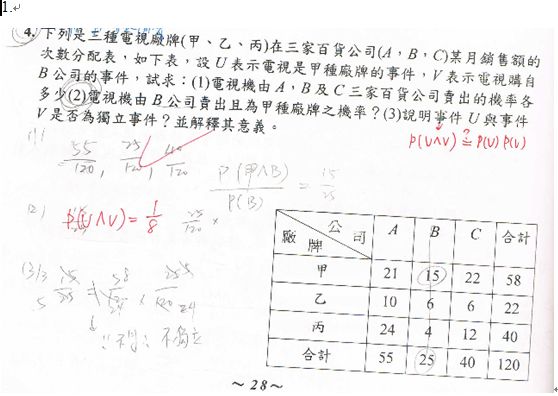 1.
4. 下列是三種電視廠牌(甲、乙、丙)在三家百貨公司(A,B,C)某月銷售額的
次數分配表,如下表,設U表示電視是甲種廠牌的事件,V表示電視購自
B公司的事件,試求:(1)電視機由A,B及C三家百貨公司賣出的機率各
多少(2)電視機由B公司賣出且為甲種廠牌之機率?(3)說明事件U與事件
V是否為獨立事件?並解釋其意義。
P(U∩V) ≟ P(U) P(V)
(1) 55/120, 25/120, 40/120
P(甲∩B)/P(B) = 15/25
(2) P(U∩V) = 1/8 25/120 ×
不獨立
廠牌 公司 A B C 合計
甲 21 15 22 58
乙 10 6 6 22
丙 24 4 12 40
合計 55 25 40 120
~ 28 ~